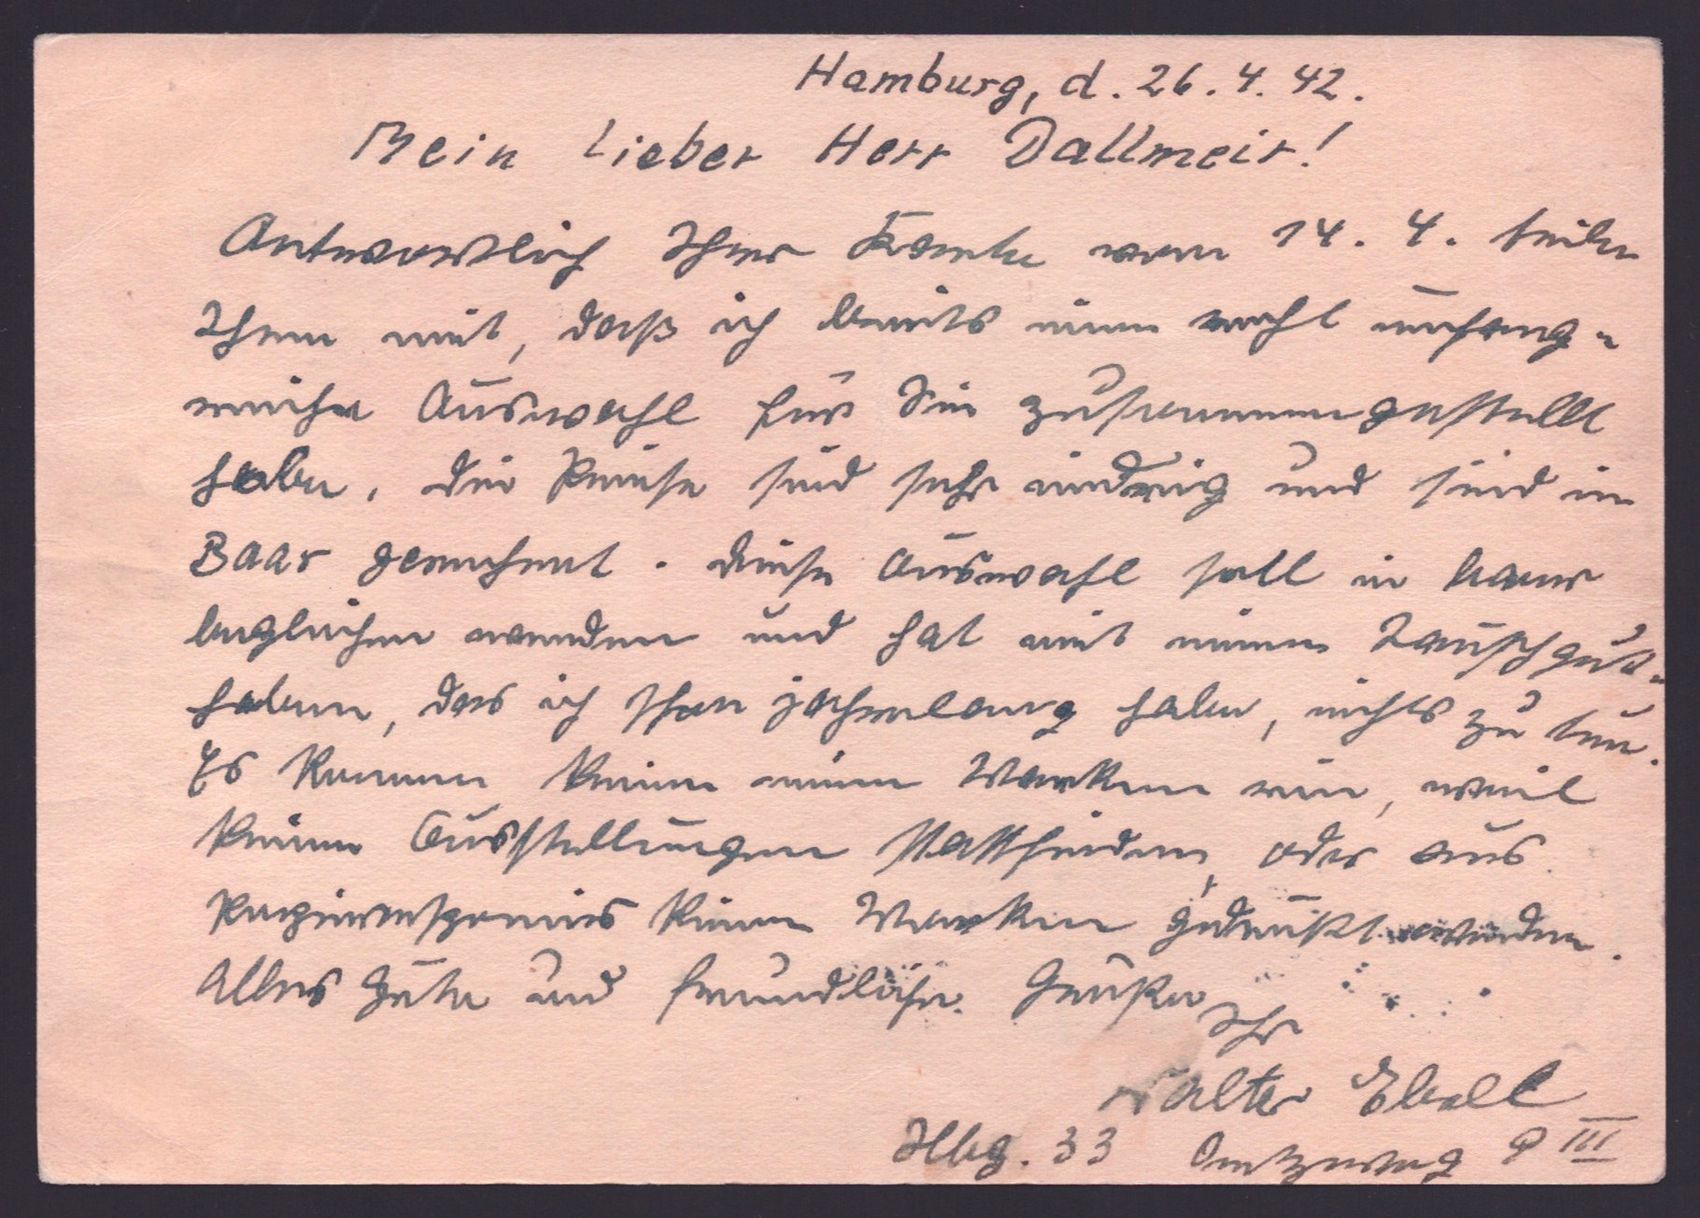 Hamburg, d. 26. 4. 42.
Mein lieber Herr Dallmeir!
Antwortlich Ihrer Karte vom 14. 4. teile
Ihnen mit, daß ich bereits eine recht umfang-
reiche Auswahl für Sie zusammengestellt
habe. Die Preise sind sehr niedrig und sind in
Baar gerechnet. Diese Auswahl soll in baar
beglichen werden und hat mit einem Tauschgut-
haben, das ich schon jahrelang habe, nichts zu tun.
Es kommen keine neuen Marken rein, weil
keine Ausstellungen stattfinden, oder aus
Papierersparnis keine Marken gedruckt werden.
Alles Gute und freundliche Grüße
Ihr
Walter
Hbg. 33 III